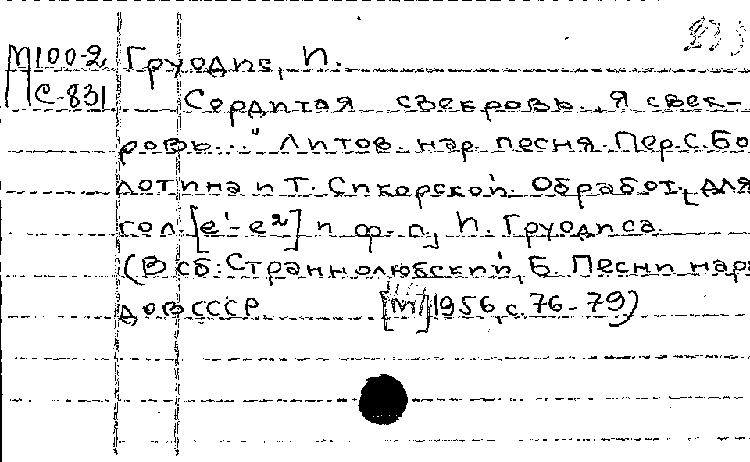 М100-2 Груодис, И.
С-831 Сердитая свекровь. „Я свек-
ровь..." Литов. нар. песня. Пер. С. Бо
лотина и Т. Сикорской. Обработ. для
гол. [e¹-e²] и ф-п, И. Груодиса.
(В сб: Страннолюбский, Б. Песни наро
дов СССР. [М] 1956, с. 76-79)